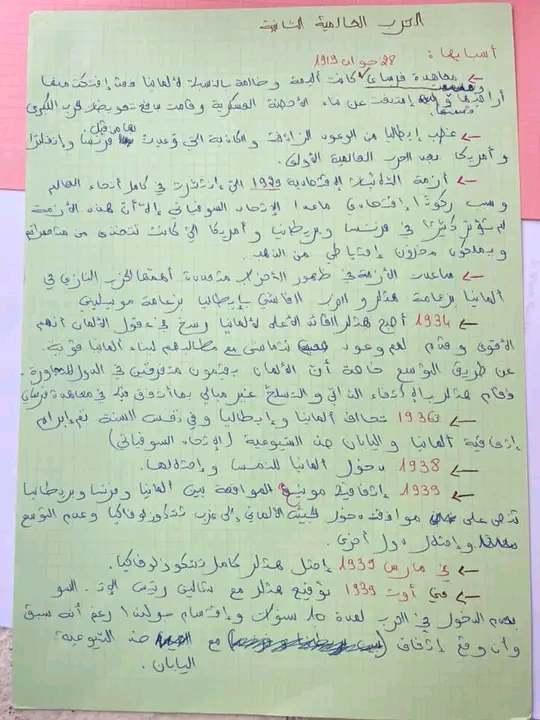 الحرب العالمية الثانية
أسبابها :
28 جوان 1919
← معاهدة فرساي كانت مجحفة وظالمة بالنسبة لألمانيا حيث إفتكت منها
أراضيها و إمتنعت عن بناء الأحصنة العسكرية وقامت بدفع تعويض للحرب الكبرى
← غضب إيطاليا من الوعود الزائفة والكاذبة التي وعدت بها من قبل فرنسا وإنقلترا
و أمريكا بعد الحرب العالمية الأولى.
← أزمة الثلاثينات الإقتصادية 1929 التي إنتشرت في كامل أنحاء العالم
وسبب ركودًا إقتصادي ماعدا الإتحاد السوفياتي إلا أن هذه الأزمة
لم تؤثر كثيرًا في فرنسا وبريطانيا و أمريكا التي كانت تتغذى من مستعمراتهم
ويملكون مخزون إحتياطي من الذهب.
← ساعدت الأزمة في ظهور الأحزاب متعددة أهمها الحزب النازي في
ألمانيا بزعامة هتلر و الحزب الفاشي بإيطاليا بزعامة موسيليني
← 1934 أصبح هتلر القائد الأعلى لألمانيا رسخ في عقول الألمان أنهم
الأقوى وقدم لهم وعود تتماشى مع مطالبهم لبناء ألمانيا قوية.
عن طريق التوسع خاصة أن الألمان يقيمون متفرقين في الدول المجاورة.
وقام هتلر بالإكتفاء الذاتي والتسلح غير مبالي بما أتفق عليه في معاهدة فرساي
← 1936 تحالف ألمانيا و إيطاليا وفي نفس السنة تم إبرام
إتفاقية ألمانيا و اليابان ضد الشيوعية (الإتحاد السوفياتي)
← 1938 دخول ألمانيا للنمسا وإحتلالها.
← 1939 إتفاقية مونيخ الموافقة بين ألمانيا وفرنسا وبريطانيا
تنص على موافقة دخول الجيش الألماني إلى غرب تشكوزلوفاكيا وعدم التوسع
وإحتلال دول أخرى.
← في مارس 1939 إحتل هتلر كامل تشكوزلوفاكيا.
← في أوت 1939 توقيع هتلر مع ستالين رئيس الإتـ. السو
بعدم الدخول في الحرب لمدة 10 سنوات وإقتسام بولندا رغم أنه سبق
وأن وقع إتفاق مع ضد الشيوعية
اليابان.